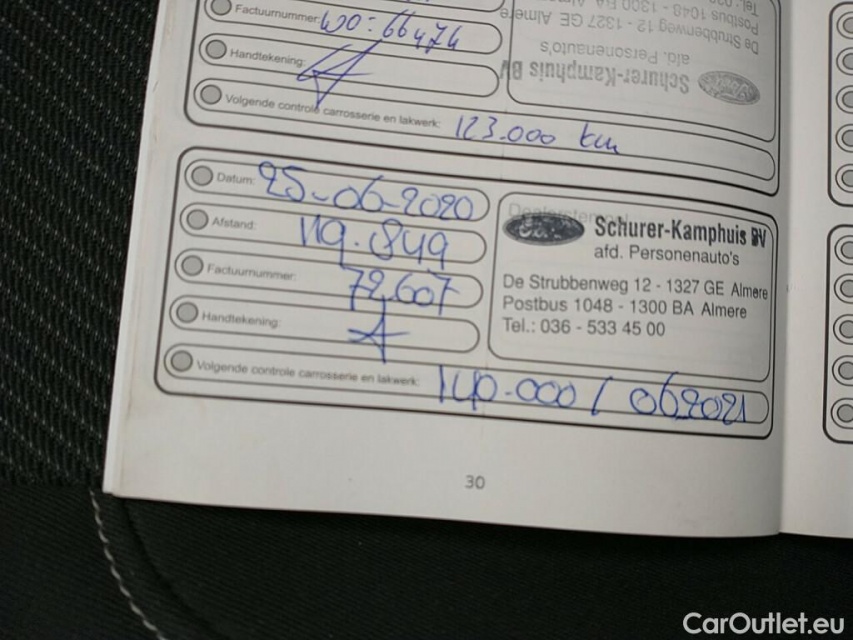 Factuurnummer: WO: 66474
Handtekening:
Volgende controle carrosserie en lakwerk: 123.000 km
Tel.:
Postbus 1048 - 1300 BA
De Strubbenweg 12 - 1327 GE Almere
afd. Personenauto's
Schurer-Kamphuis BV
Datum: 25-06-2020
Afstand: 119.849
Factuurnummer: 72.607
Handtekening:
Volgende controle carrosserie en lakwerk: 140.000 / 062021
Dealerstempel
Ford
Schurer-Kamphuis BV
afd. Personenauto's
De Strubbenweg 12 - 1327 GE Almere
Postbus 1048 - 1300 BA Almere
Tel.: 036 - 533 45 00
30
CarOutlet.eu